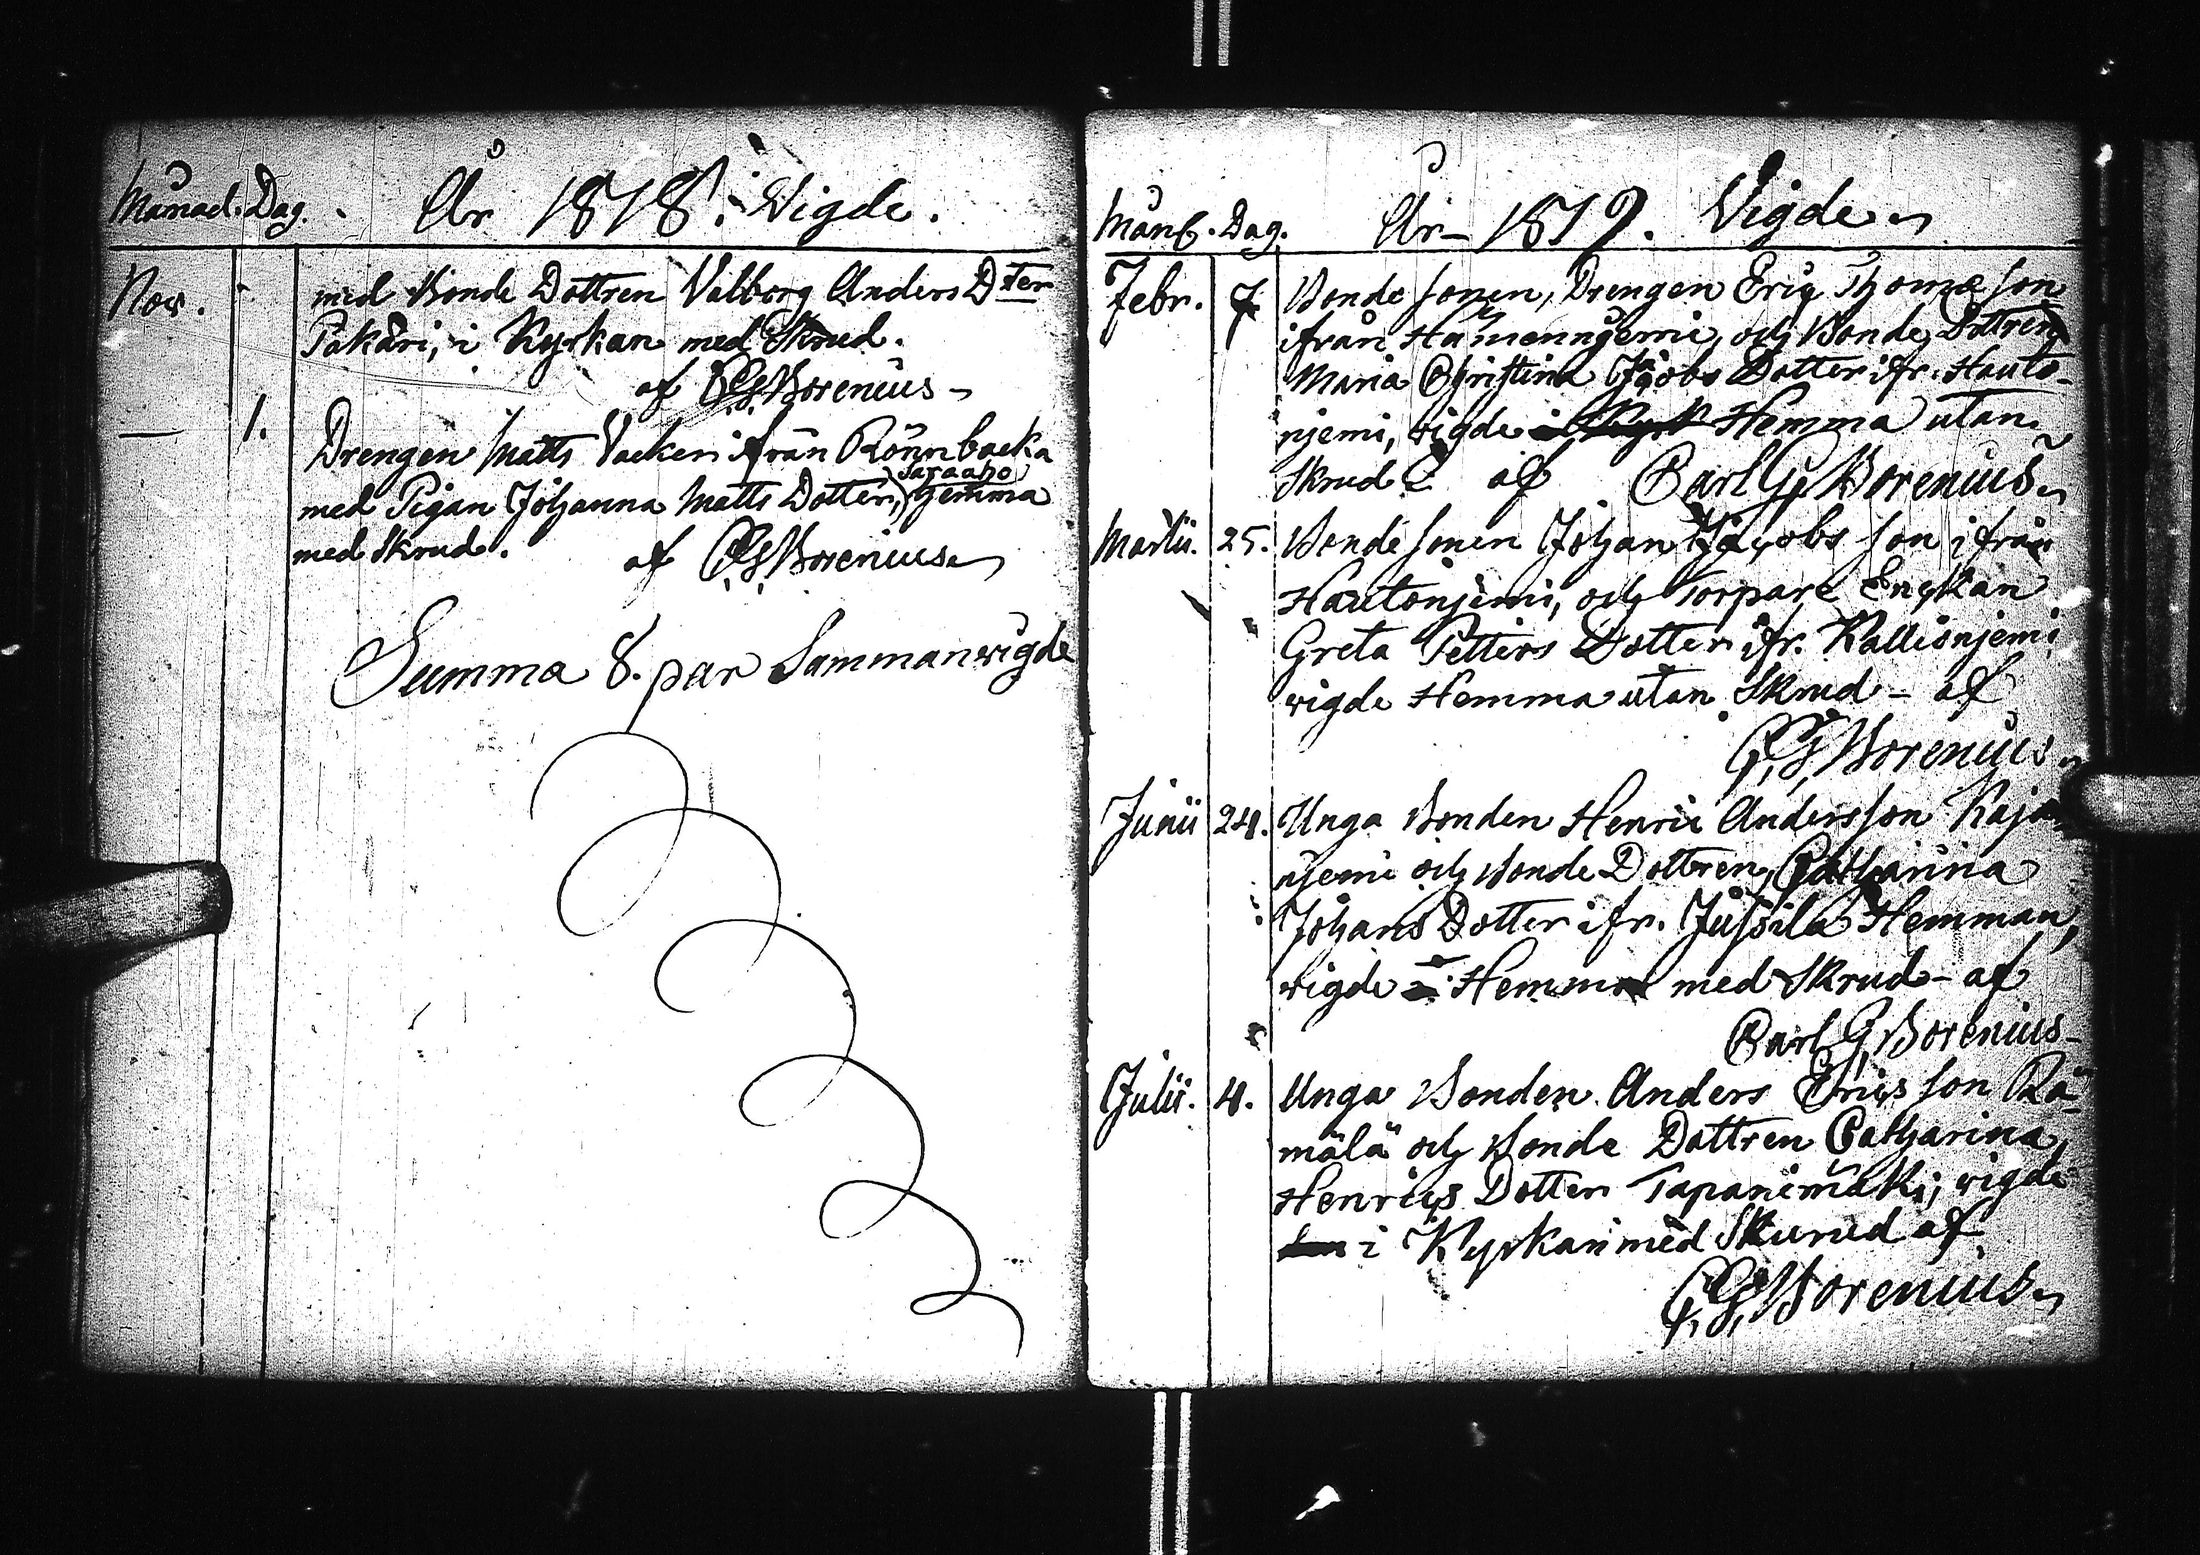 Månad. Dag. År 1818. Vigde.
Nov. med Bonde Dottren Valborg Anders Dter
Pakari, i Kyrkan med Skrud.
af CGBorenius
— 1. Drengen Matts Vacker ifrån Rönnbacka
Saraaho
med Pigan Johanna Matts Dotter, hemma
med Skrud. af CGBorenius
Summa 8. par Sammanvigde
Mån. Dag. År 1819. Vigde
Febr. 7 Bonde Sonen, Drengen Eric Thomæ Son
ifrån Hamennjemi, och Bonde Dottren
Maria Christina Jacobs Dotter ifr. Hauto-
njemi, vigde i Kyrk Hemma utan
Skrud af Carl G Borenius
Martii. 25. Bonde Sonen Johan Jacobs Son ifrån
Hautonjemi, och Torpare Enckan
Greta Petters Dotter ifr. Kallionjemi
vigde Hemma utan Skrud - af
C,G,Borenius
Junii 24. Unga Bonden Henric Andersson Kaja
njemi och Bonde Dottren, Catharina
Johans Dotter ifr. Jussila Hemman,
vigde Hemma med Skrud - af
Carl G Borenius
Julii. 4. Unga Bonden Anders Erics Son Rä-
mälä och Bonde Dottren Catharina
Henrics Dotter Tapanimäki, vigde
i Kyrkan med Skurud af
C,G,Borenius